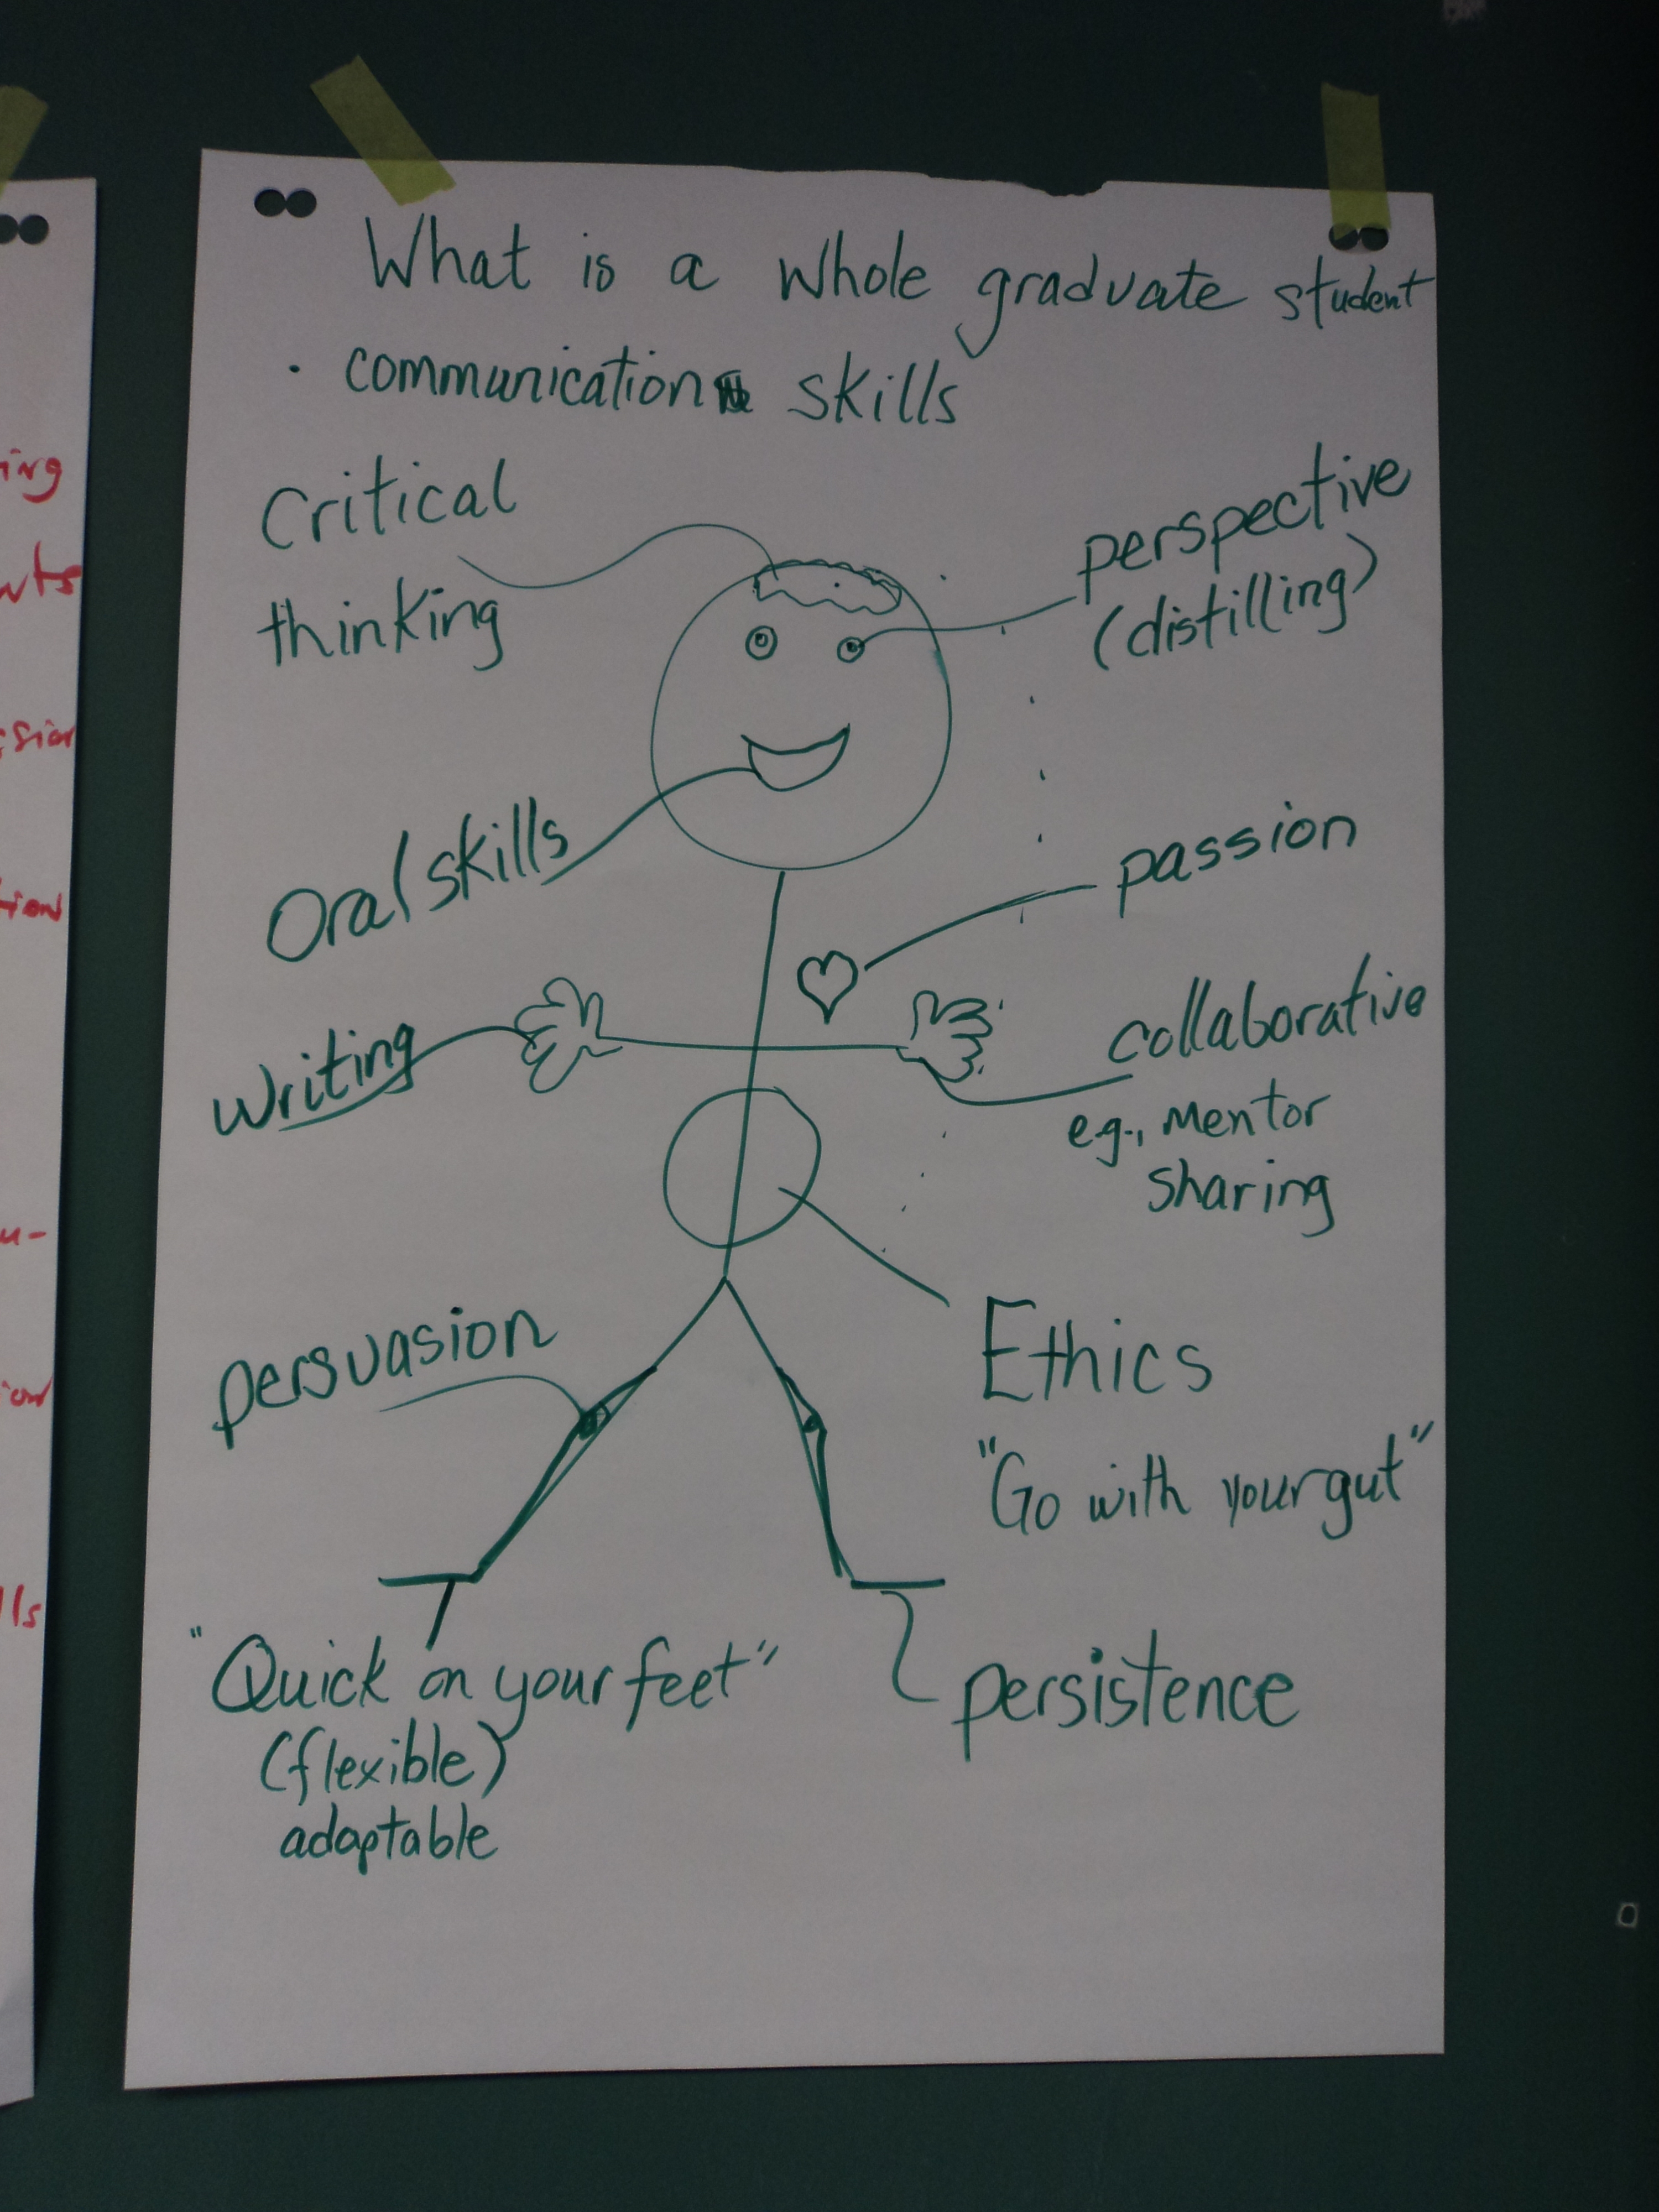 What is a whole graduate student
· communication skills
Critical
thinking
perspective
(distilling)
Oral skills
passion
writing
collaborative
eg., mentor
sharing
persuasion
Ethics
"Go with your gut"
"Quick on your feet"
(flexible)
adaptable
persistence
ing
nts
ssion
tion
u-
ion
lls